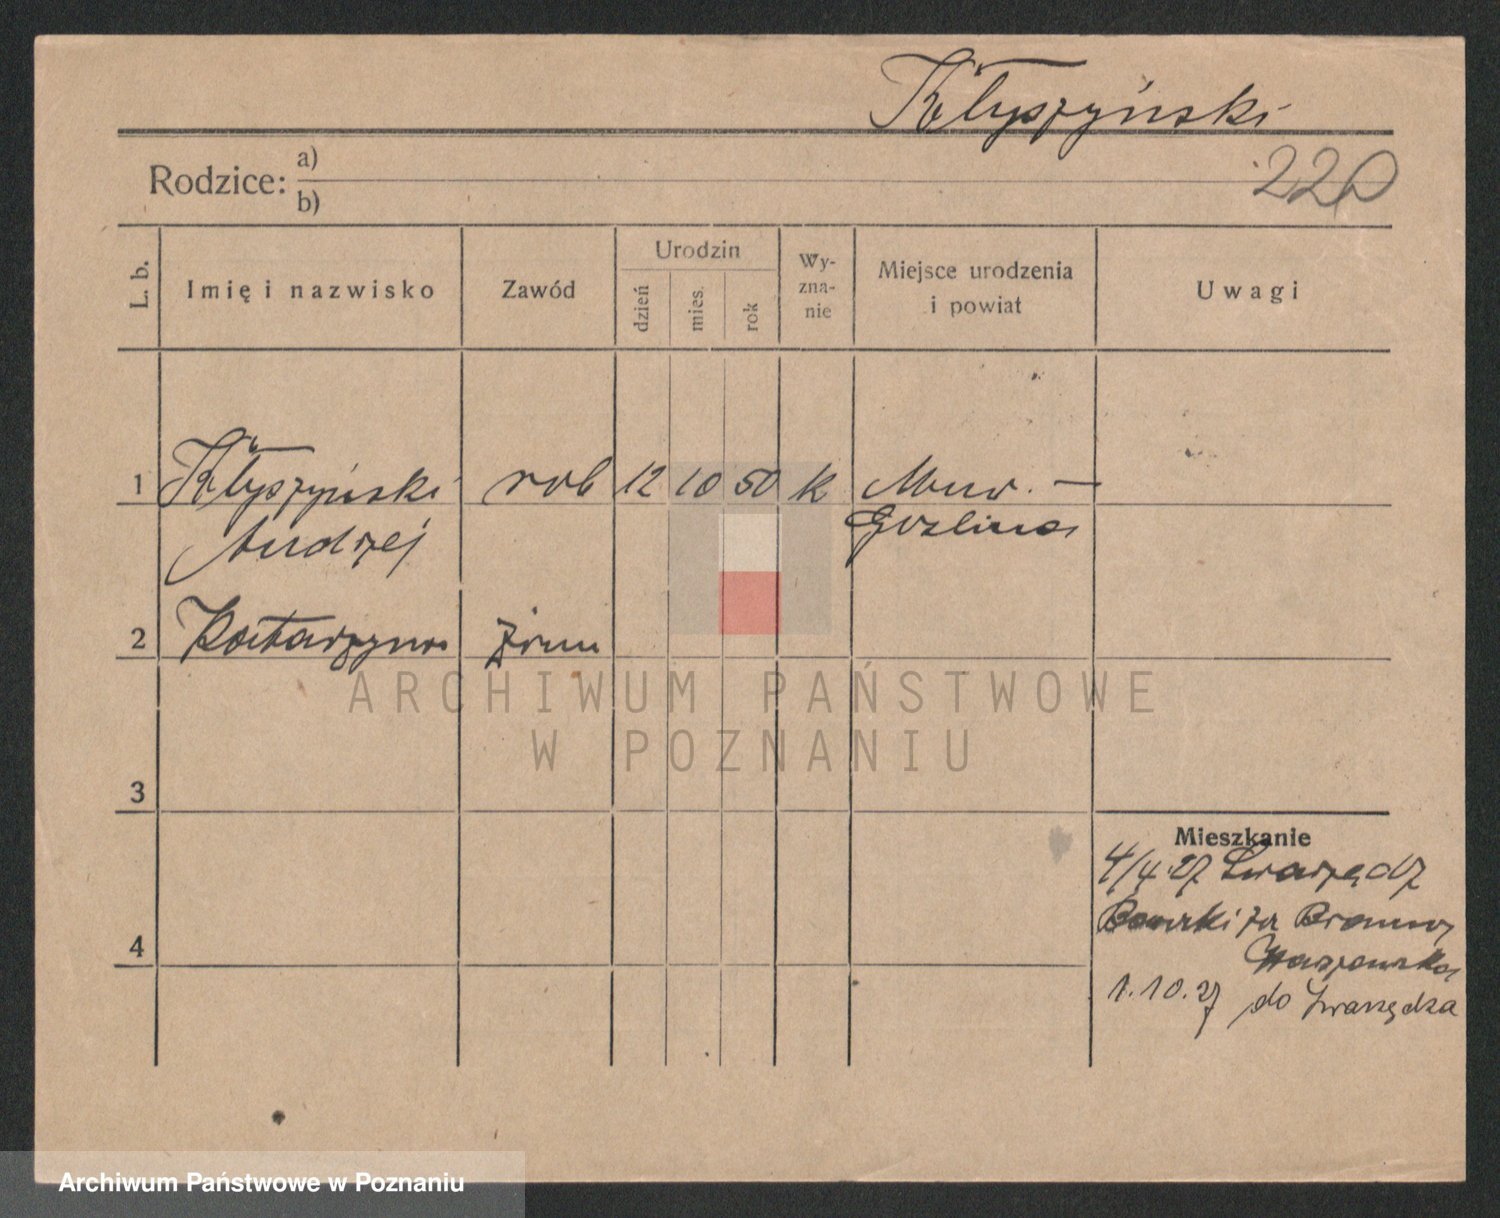 Kłyszyński
220
Rodzice: a)
b)
L. b.
Imię i nazwisko
Zawód
Urodzin
dzień
mies.
rok
Wy-
zna-
nie
Miejsce urodzenia
i powiat
Uwagi
1 Kłyszyński rob 12 10 50 k Mur. —
Andrzej Goślina
2 Katarzyna żona
ARCHIWUM PAŃSTWOWE
W POZNANIU
3
Mieszkanie
4/4.27 Swarzędz
4
1.10.27 do Swarzędza
Archiwum Państwowe w Poznaniu